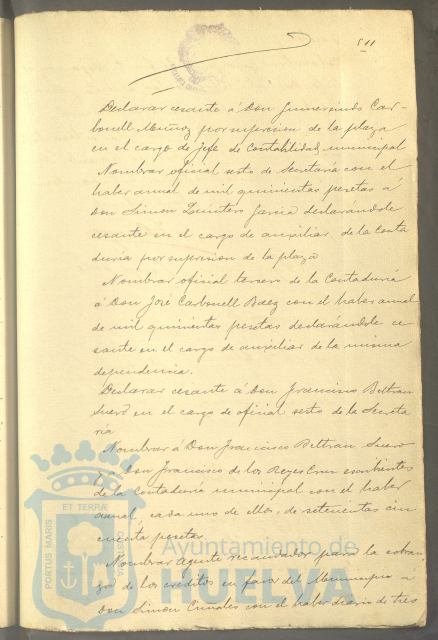 511
Declarar cesante á Don Gumersindo Car-
bonell Muñoz por supresion de la plaza
en el cargo de jefe de Contabilidad municipal
Nombrar oficial sesto de Secretaría con el
haber anual de mil quinientas pesetas á
Don Simon Quintero Garcia declarándole
cesante en el cargo de auxiliar de la Conta
duria por supresion de la plaza
Nombrar oficial tercero de la Contaduría
á Don José Carbonell Baez con el haber anual
de mil quinientas pesetas declarándole ce
sante en el cargo de auxiliar de la misma
dependencia.
Declarar cesante á Don Francisco Beltran
Suero en el cargo de oficial sesto de la Secreta
ría
Nombrar á Don Francisco Beltran Suero
y Don Francisco de los Reyes Cruz escribientes
de la Contaduria municipal con el haber
anual, cada uno de ellos, de setecientas cin
cuenta pesetas
Nombrar Agente recaudador para la cobran
za de los creditos en favor del Municipio a
Don Simon Canales con el haber diario de tres
PORTUS MARIS
ET TERRÆ
CUSTODIA
Ayuntamiento de
HUELVA